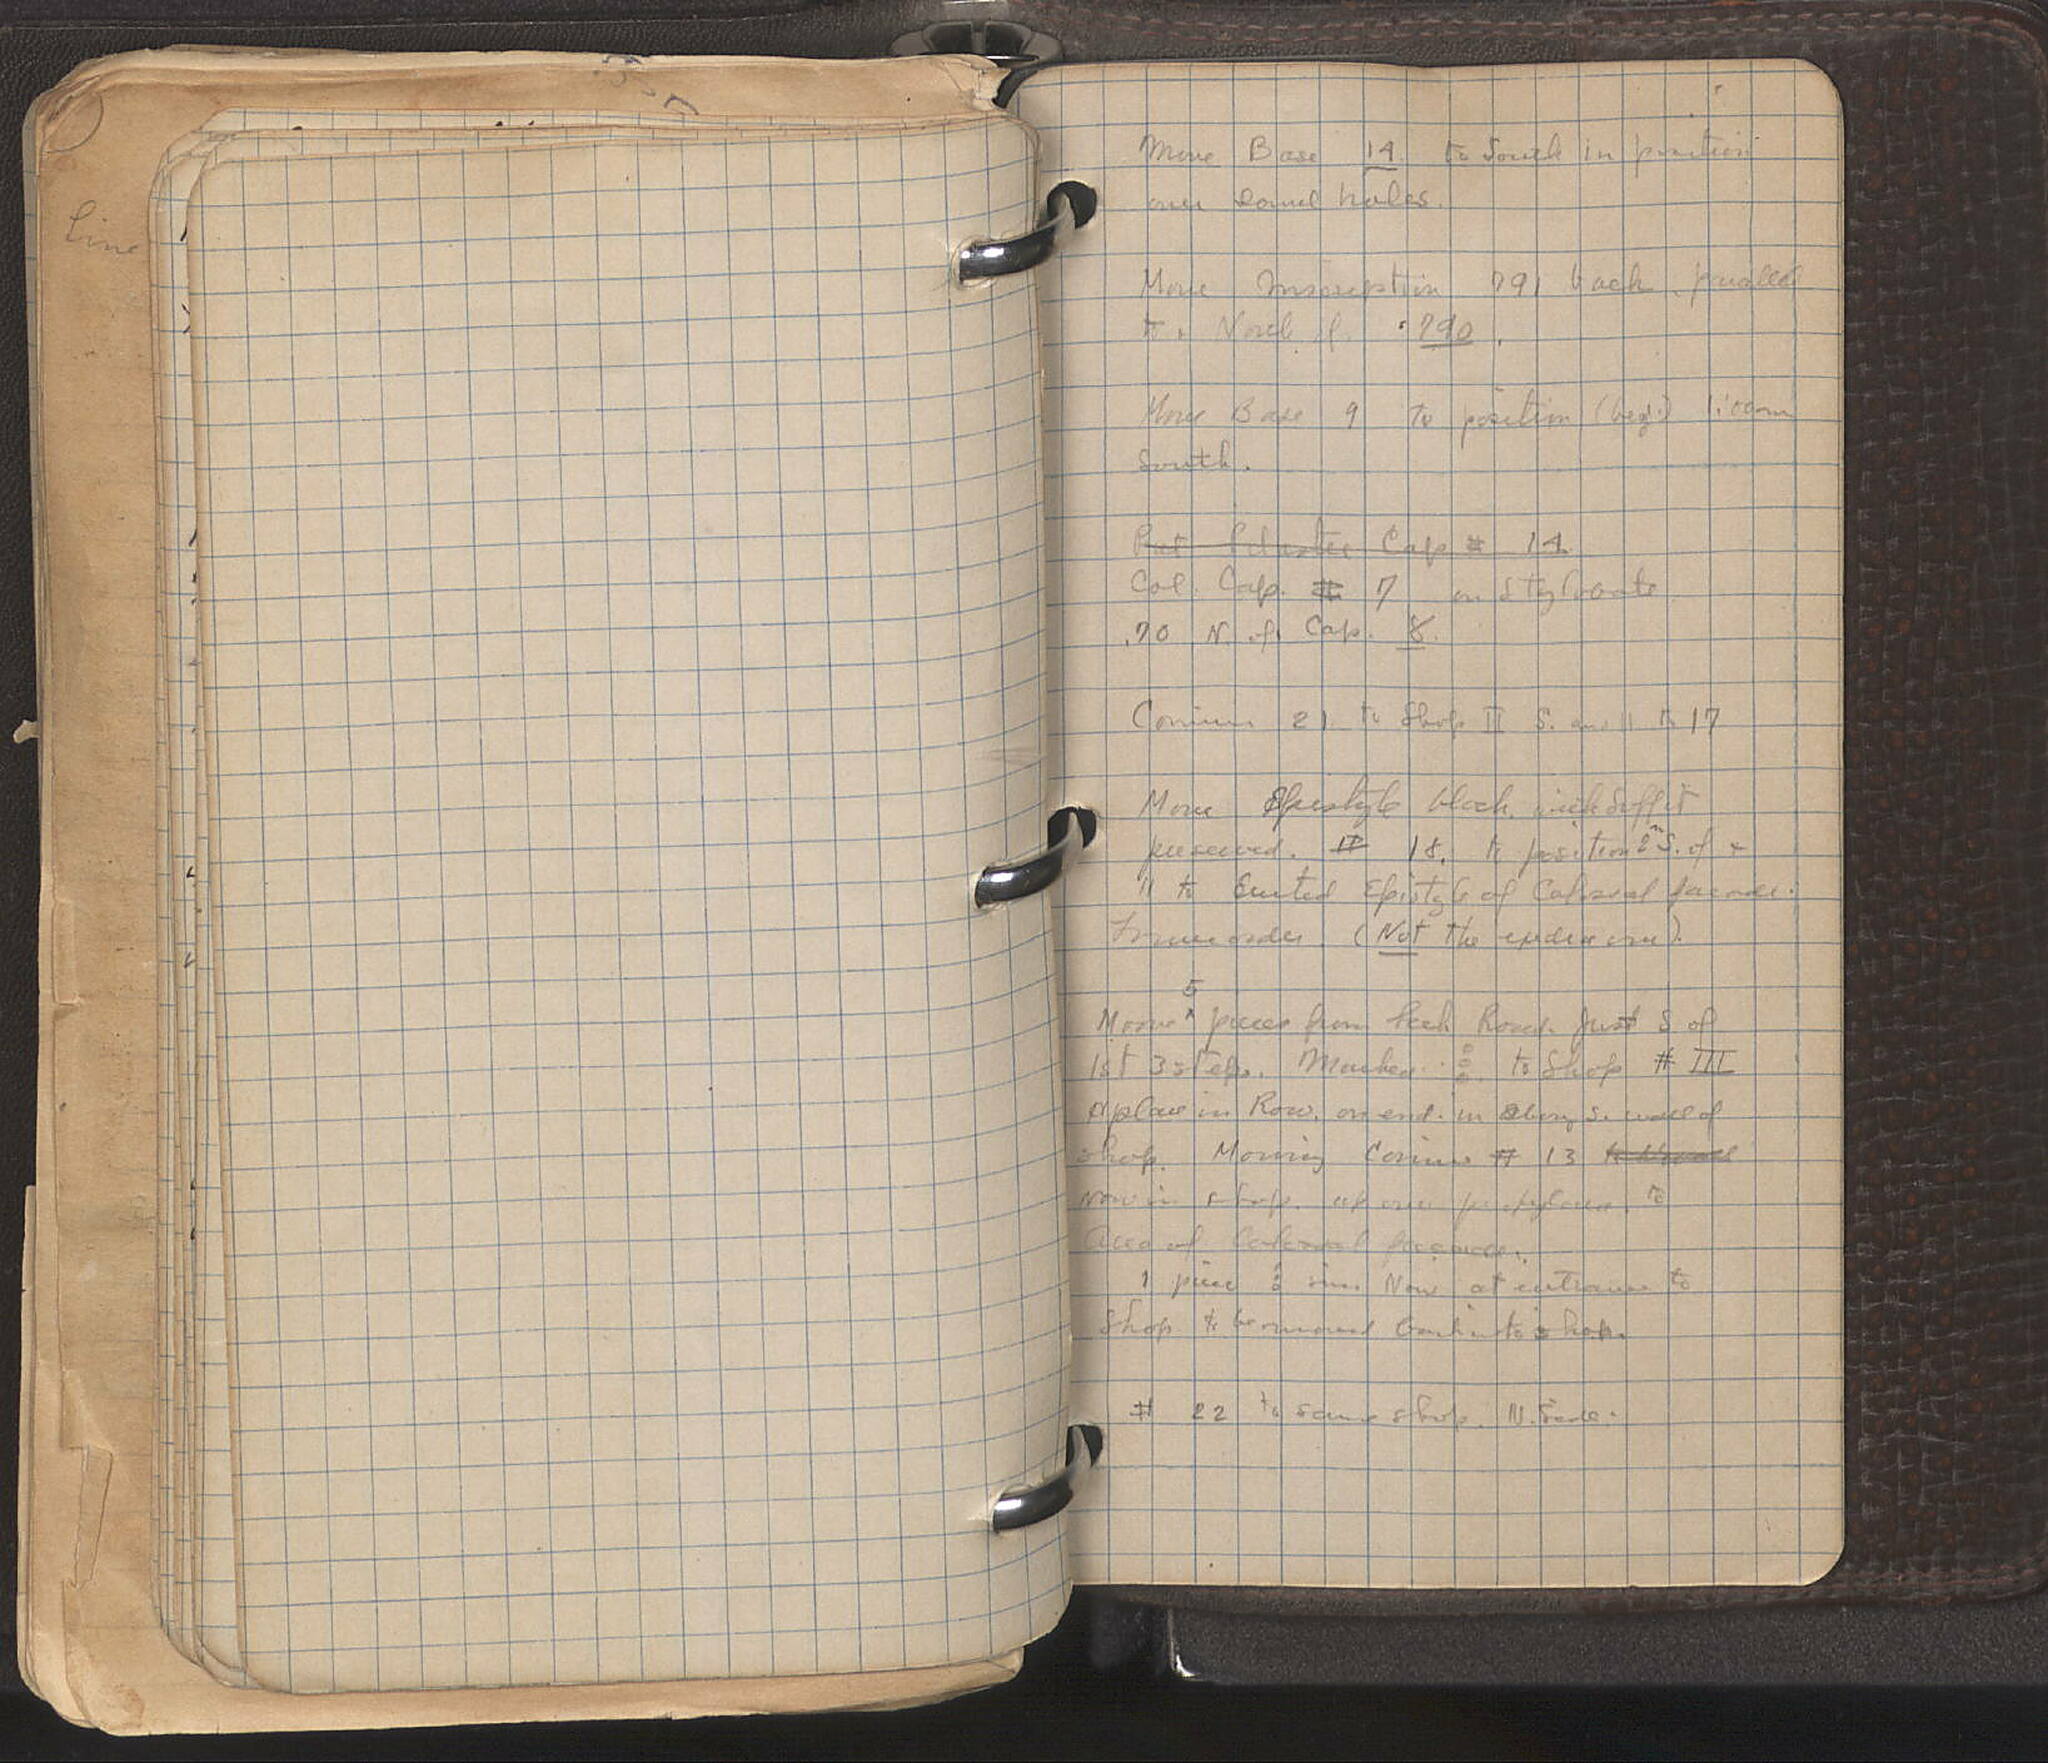 Line
Move Base 14 to South in position
over dowel holes.
Move Inscription 791 back parallel
to + North of 790.
Move Base 9 to position (beg.) 1.00m
South.
Put Pilaster Cap # 14
Col. Cap. # 7 on Stylobate
.70 N. of Cap. 8.
Cornices 21 to Shop II S. and 11 to 17
Move Epistyle block with Soffit
preserved. # 18. to position 2m S. of +
" to Erected Epistyle of Colossal facade.
(Not the
5
Move pieces from back Road just S of
1st 3 steps. Marked to Shop # III
& place in Row. on end. in along S. wall of
shop. Moving Cornice # 13
Now in shop. up over propylaea. to
Area of Colossal facade.
1 piece Now at entrance to
Shop to be moved back into shop.
# 22 to same shop. N. Side.